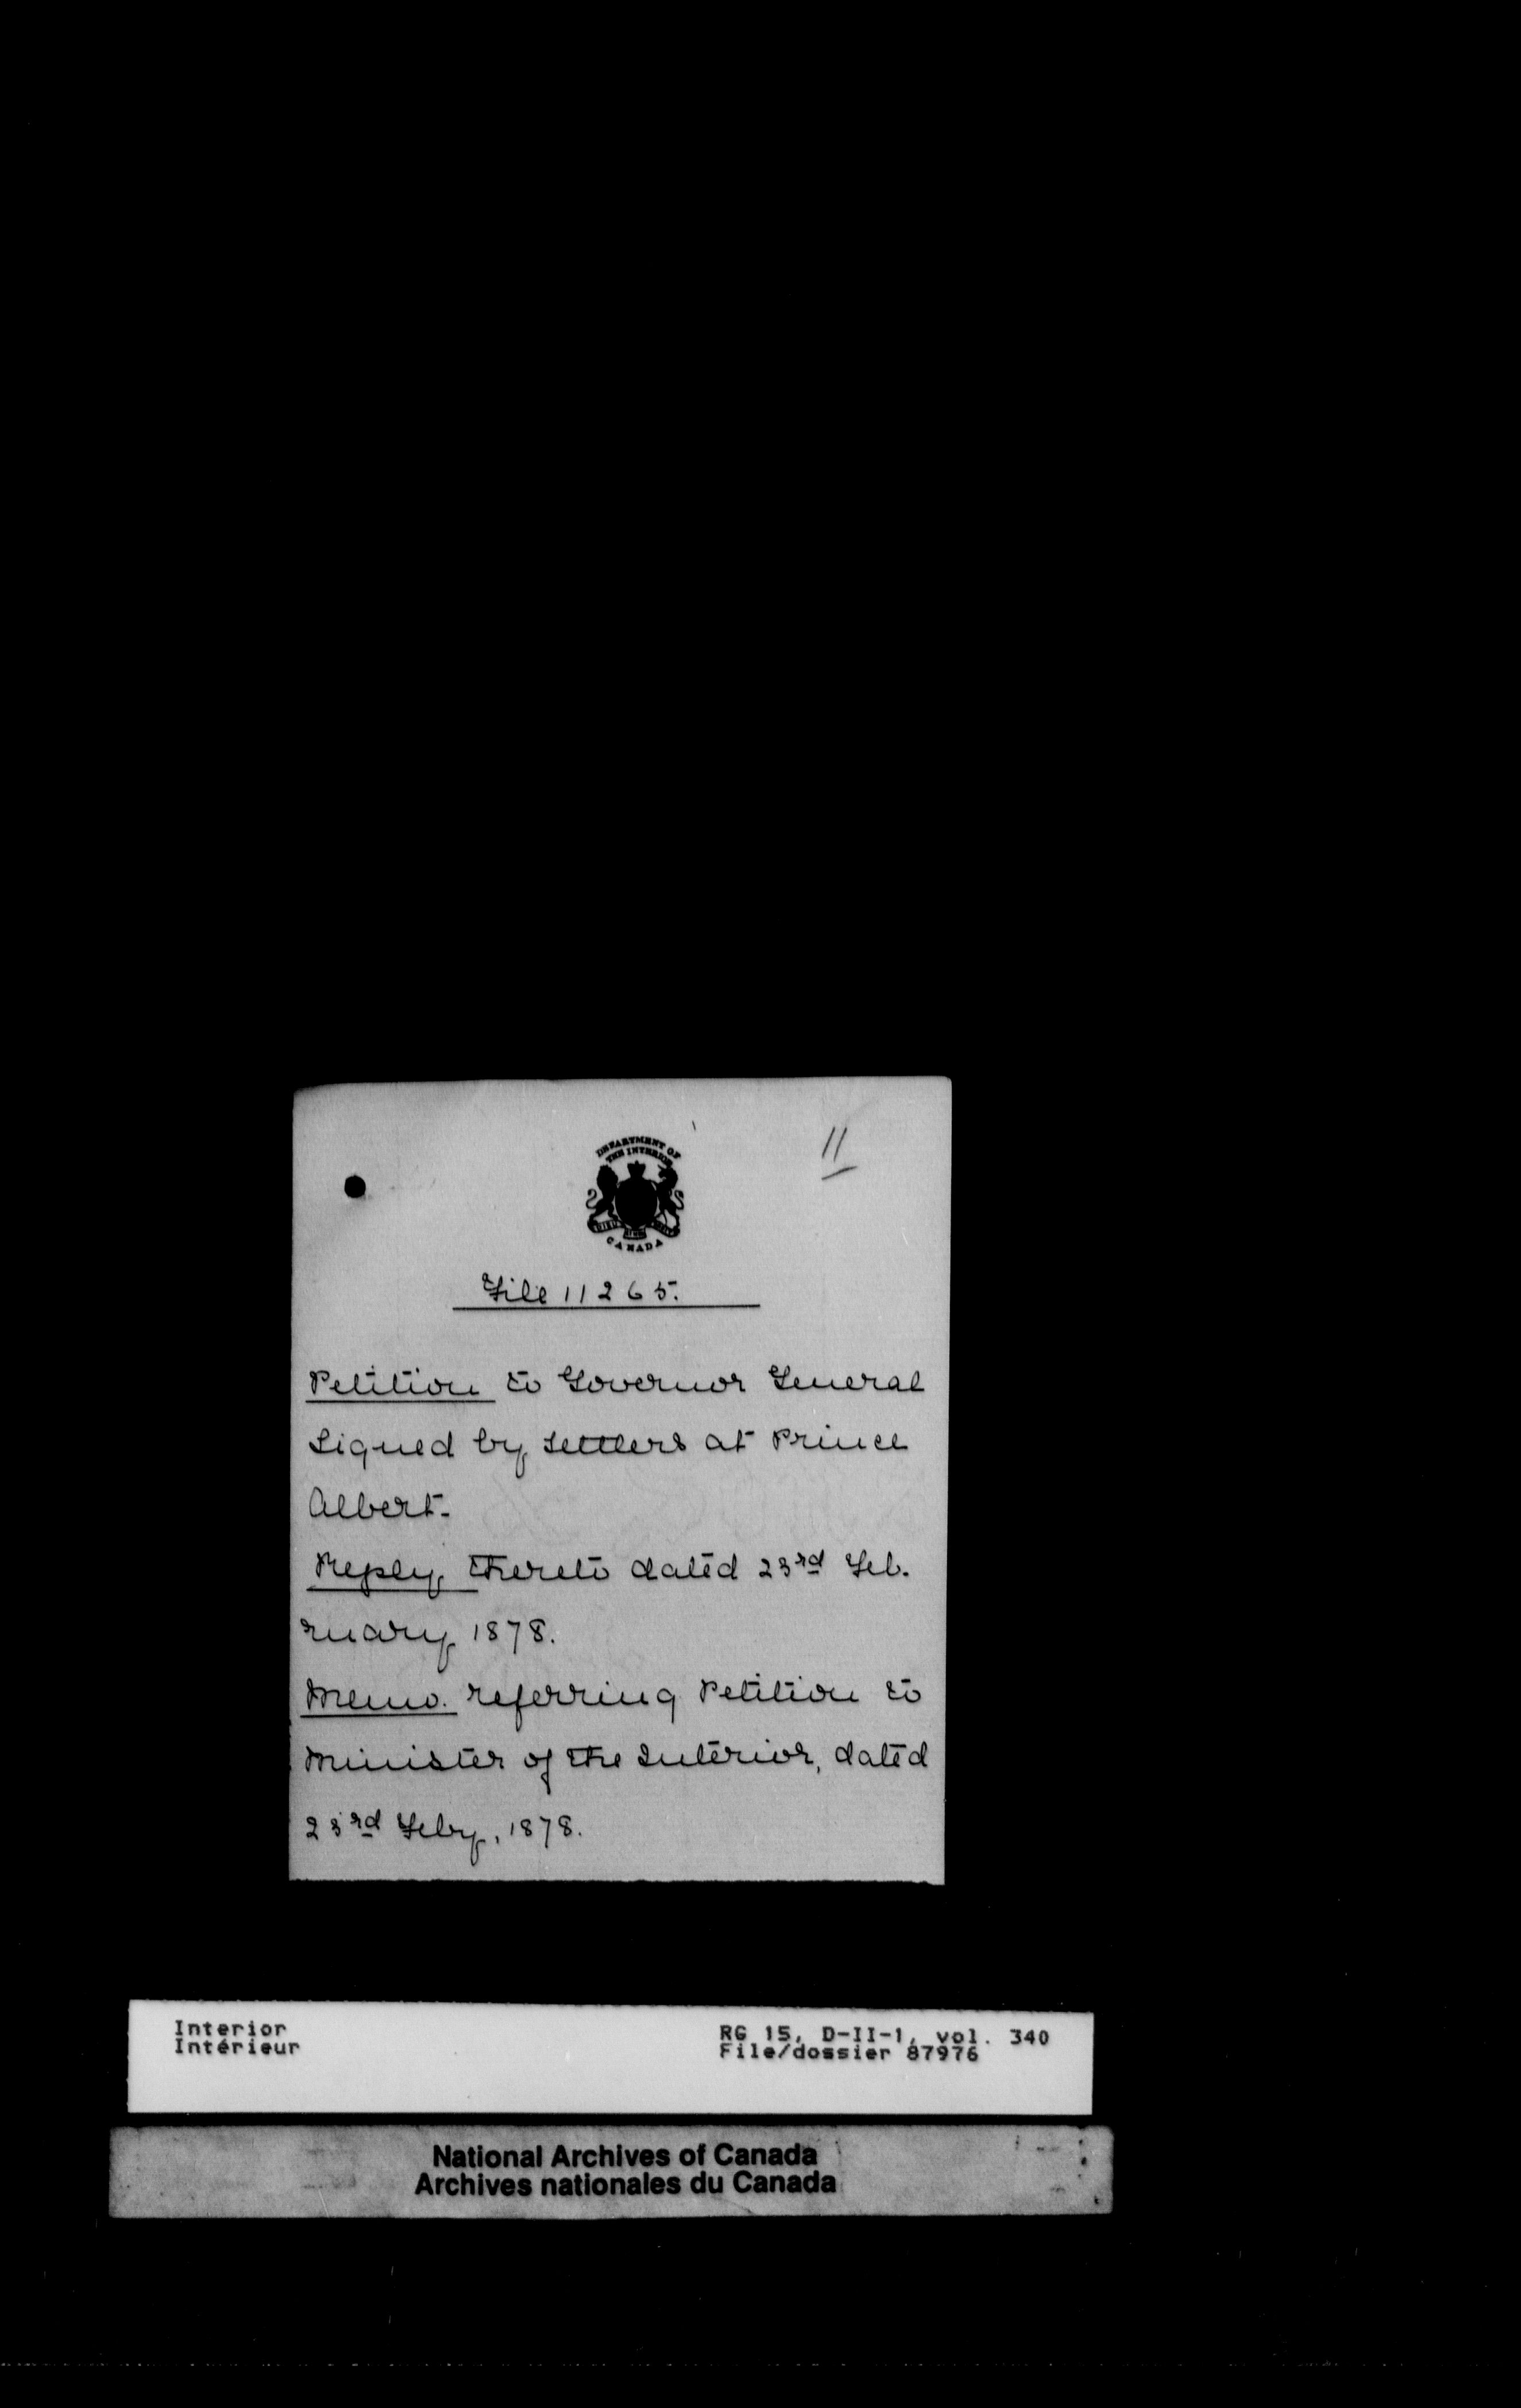 11
DEPARTMENT OF
THE INTERIOR
CANADA
File 11265.
Petition to Governor General
signed by settlers at Prince
Albert.
Reply thereto dated 23rd Feb.
ruary 1878.
Memo. referring Petition to
Minister of the Interior, dated
23rd Feby, 1878.
Interior
Intérieur
RG 15, D-II-1, vol. 340
File/dossier 87976
National Archives of Canada
Archives nationales du Canada